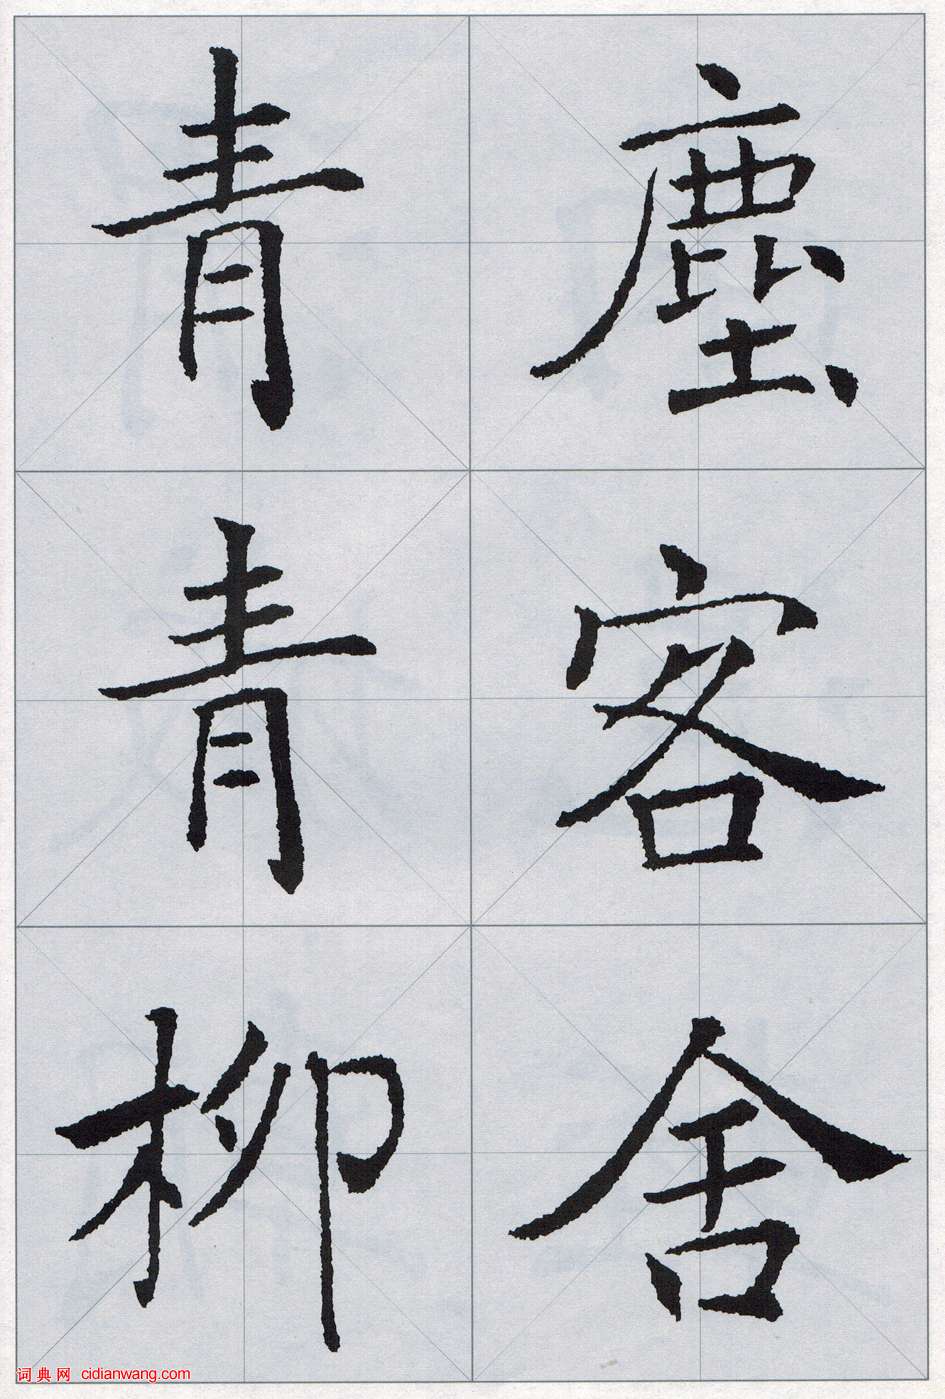 塵客舍
青青柳
词典网 cidianwang.com